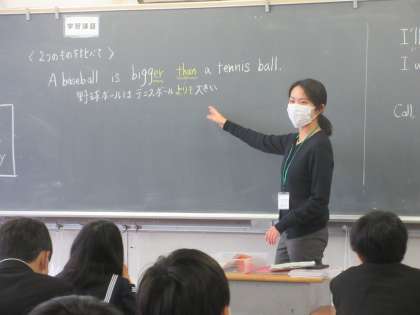 学習課題
<2つのものを比べて>
A baseball is bigger than a tennis ball.
野球ボールは テニスボールよりも大きい
I'll
I w
Call,
y